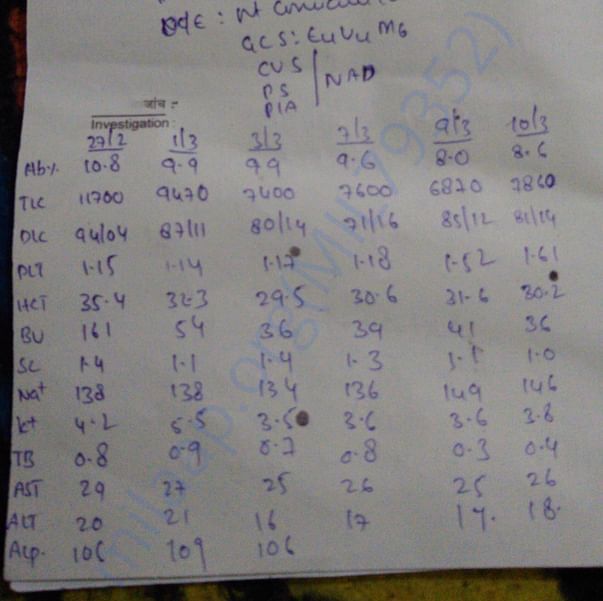 O/E: Pt conscious
GCS: E4V4M6
CVS
RS
P/A
NAD
जांच :-
Investigation :
27/2 1/3 3/3 7/3 9/3 10/3
Hb% 10.8 9.9 9.9 9.6 8.0 8.6
TLC 11700 9470 7400 7600 6870 7860
DLC 94/04 87/11 80/14 71/16 85/12 81/14
PLT 1.15 1.14 1.17 1.18 1.52 1.61
HCT 35.4 32.3 29.5 30.6 31.6 30.2
BU 161 54 36 39 41 36
SC 1.4 1.1 1.4 1.3 1.1 1.0
Na+ 138 138 134 136 149 146
K+ 4.2 5.5 3.5 3.6 3.6 3.8
TB 0.8 0.9 0.7 0.8 0.3 0.4
AST 29 27 25 26 25 26
ALT 20 21 16 17 17. 18.
ALP. 106 109 106